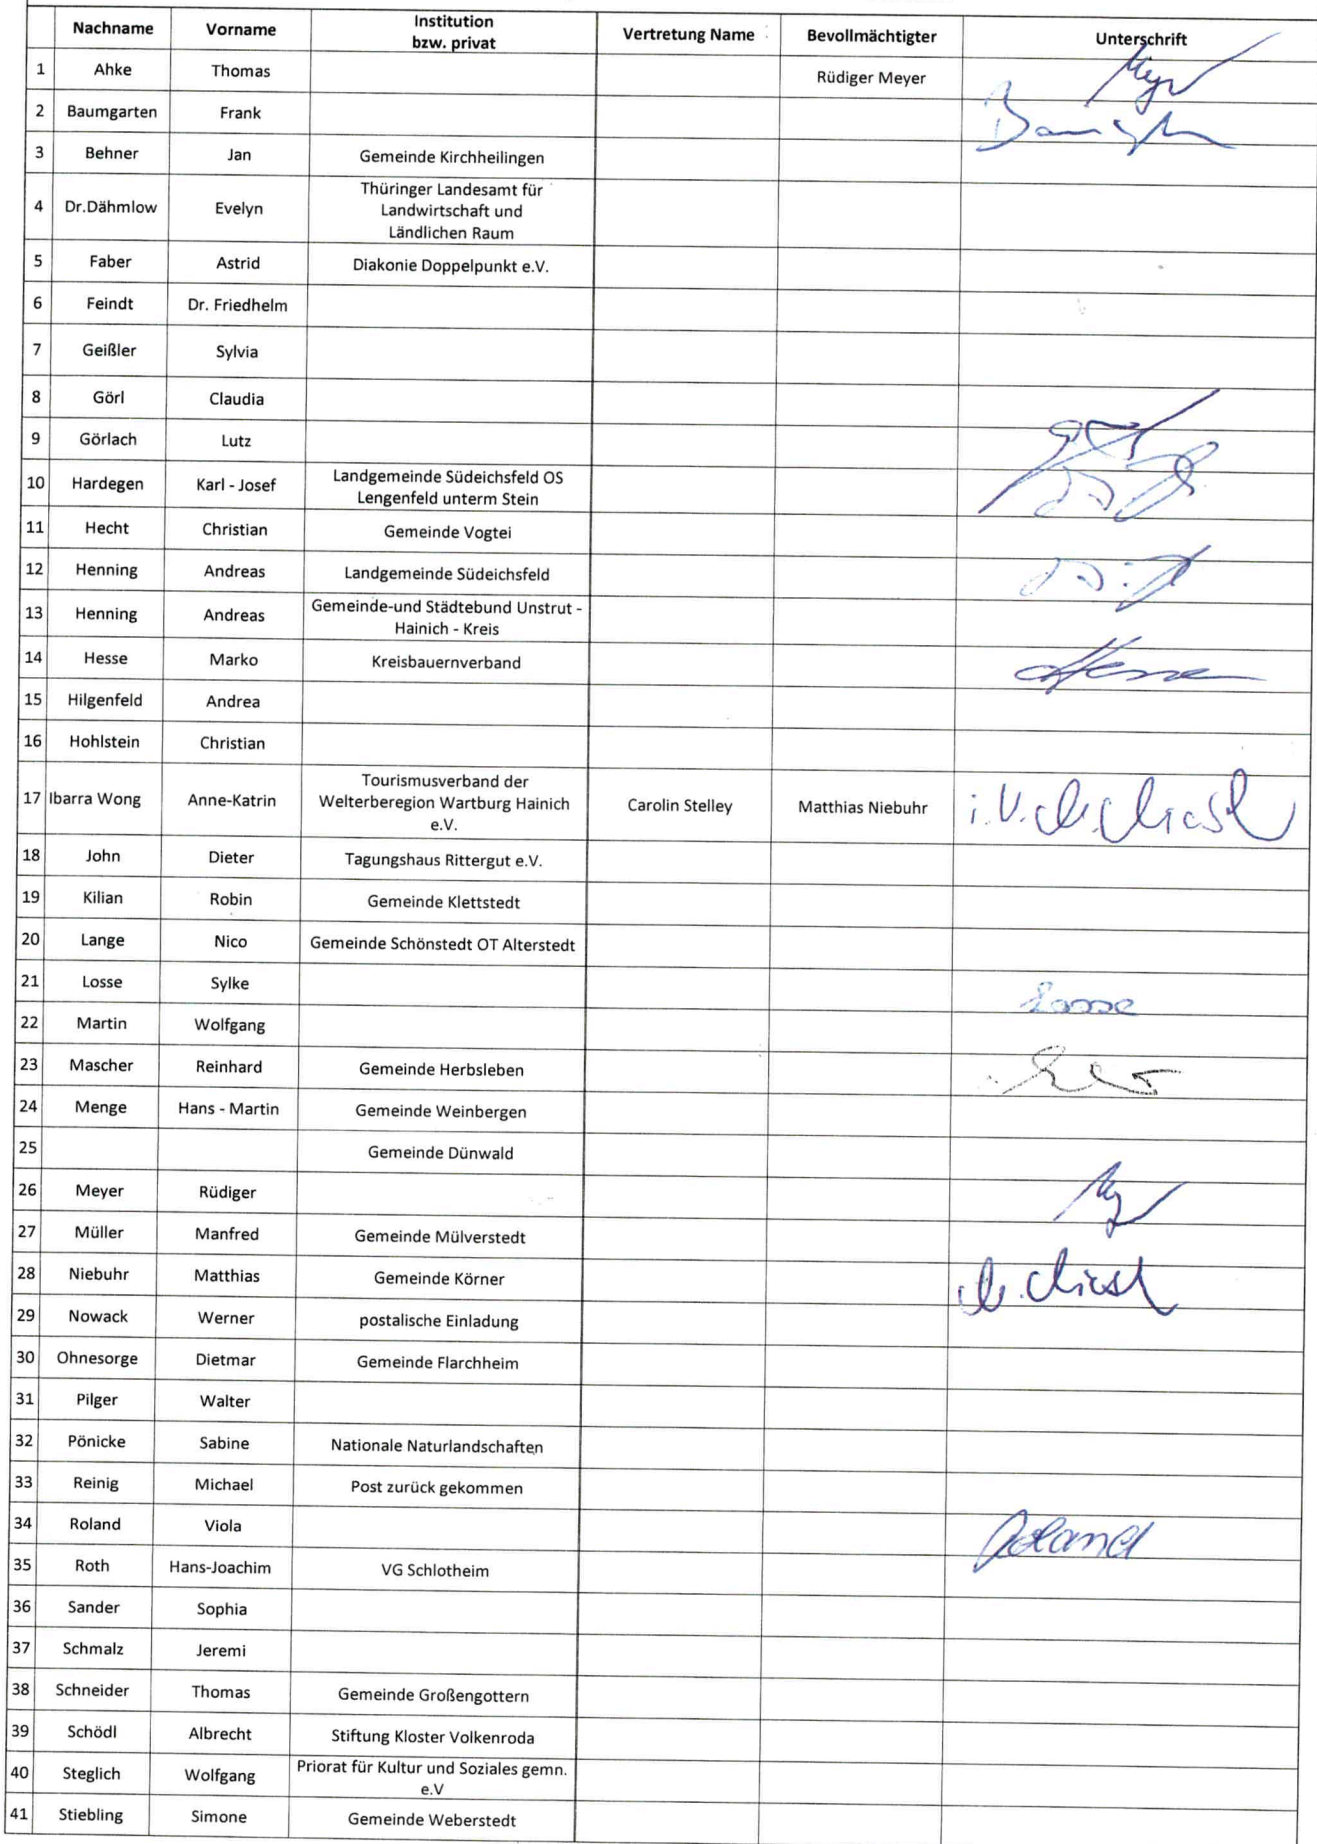 Nachname Vorname Institution bzw. privat Vertretung Name Bevollmächtigter Unterschrift
1 Ahke Thomas Rüdiger Meyer Meyer
2 Baumgarten Frank
3 Behner Jan Gemeinde Kirchheilingen
4 Dr.Dähmlow Evelyn Thüringer Landesamt für Landwirtschaft und Ländlichen Raum
5 Faber Astrid Diakonie Doppelpunkt e.V.
6 Feindt Dr. Friedhelm
7 Geißler Sylvia
8 Görl Claudia
9 Görlach Lutz
10 Hardegen Karl - Josef Landgemeinde Südeichsfeld OS Lengenfeld unterm Stein
11 Hecht Christian Gemeinde Vogtei
12 Henning Andreas Landgemeinde Südeichsfeld
13 Henning Andreas Gemeinde-und Städtebund Unstrut - Hainich - Kreis
14 Hesse Marko Kreisbauernverband Hesse
15 Hilgenfeld Andrea
16 Hohlstein Christian
17 Ibarra Wong Anne-Katrin Tourismusverband der Welterberegion Wartburg Hainich e.V. Carolin Stelley Matthias Niebuhr i.V.
18 John Dieter Tagungshaus Rittergut e.V.
19 Kilian Robin Gemeinde Klettstedt
20 Lange Nico Gemeinde Schönstedt OT Alterstedt
21 Losse Sylke Losse
22 Martin Wolfgang
23 Mascher Reinhard Gemeinde Herbsleben
24 Menge Hans - Martin Gemeinde Weinbergen
25 Gemeinde Dünwald
26 Meyer Rüdiger
27 Müller Manfred Gemeinde Mülverstedt
28 Niebuhr Matthias Gemeinde Körner
29 Nowack Werner postalische Einladung
30 Ohnesorge Dietmar Gemeinde Flarchheim
31 Pilger Walter
32 Pönicke Sabine Nationale Naturlandschaften
33 Reinig Michael Post zurück gekommen
34 Roland Viola Roland
35 Roth Hans-Joachim VG Schlotheim
36 Sander Sophia
37 Schmalz Jeremi
38 Schneider Thomas Gemeinde Großengottern
39 Schödl Albrecht Stiftung Kloster Volkenroda
40 Steglich Wolfgang Priorat für Kultur und Soziales gemn. e.V
41 Stiebling Simone Gemeinde Weberstedt